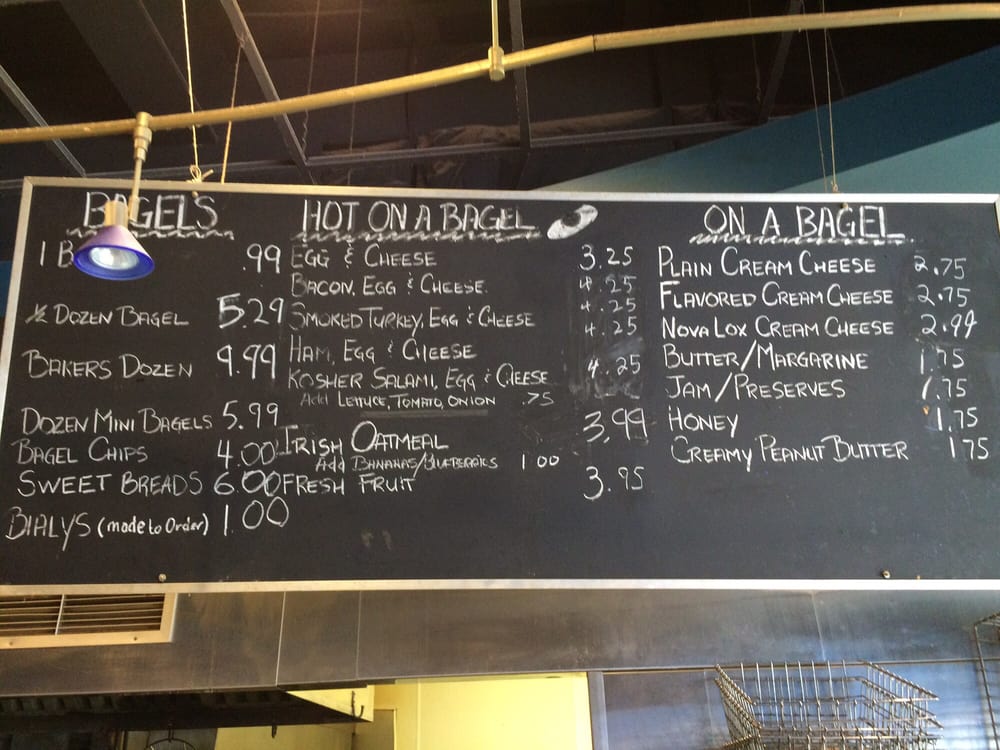 BAGELS
1 B .99
½ DOZEN BAGEL 5.29
BAKERS DOZEN 9.99
DOZEN MINI BAGELS 5.99
BAGEL CHIPS 4.00
SWEET BREADS 6.00
BIALYS (made to Order) 1.00
HOT ON A BAGEL
EGG & CHEESE 3.25
BACON, EGG & CHEESE 4.25
SMOKED TURKEY, EGG & CHEESE 4.25
HAM, EGG & CHEESE 4.25
KOSHER SALAMI, EGG & CHEESE 4.25
Add LETTUCE, TOMATO, ONION .75
IRISH OATMEAL 3.99
Add BANANAS/BLUEBERRIES 1 00
FRESH FRUIT 3.95
ON A BAGEL
PLAIN CREAM CHEESE 2.75
FLAVORED CREAM CHEESE 2.75
NOVA LOX CREAM CHEESE 2.99
BUTTER/MARGARINE 1.75
JAM/PRESERVES 1.75
HONEY 1.75
CREAMY PEANUT BUTTER 1 75